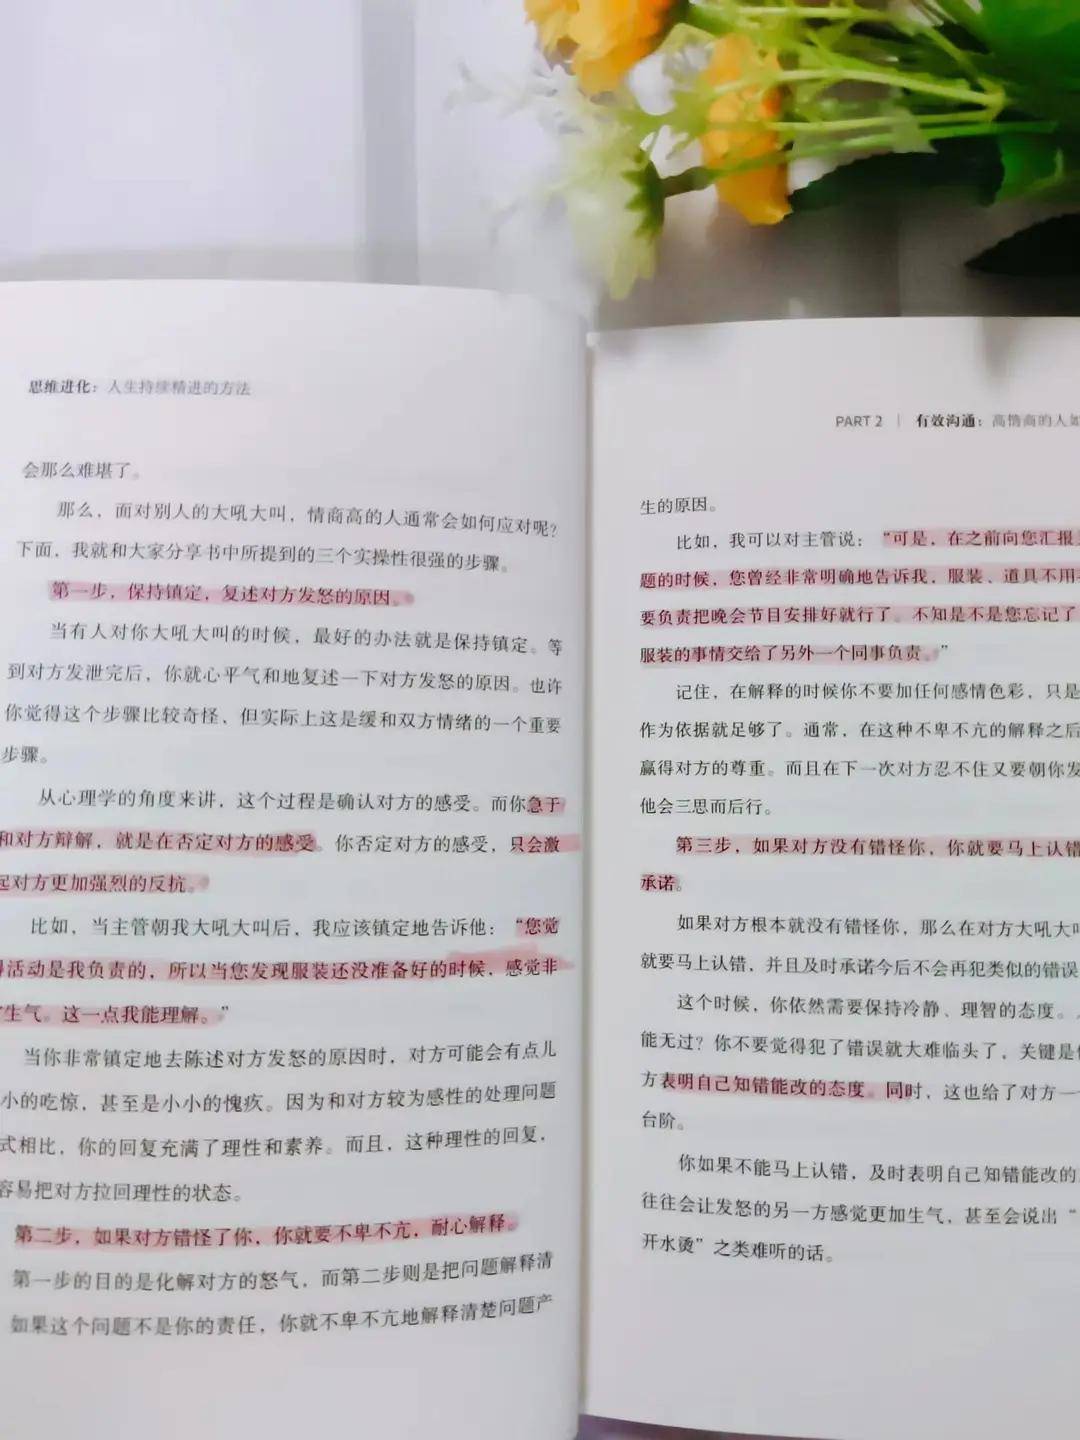 思维进化：人生持续精进的方法
会那么难堪了。
那么，面对别人的大吼大叫，情商高的人通常会如何应对呢？
下面，我就和大家分享书中所提到的三个实操性很强的步骤。
第一步，保持镇定，复述对方发怒的原因。
当有人对你大吼大叫的时候，最好的办法就是保持镇定。等
到对方发泄完后，你就心平气和地复述一下对方发怒的原因。也许
你觉得这个步骤比较奇怪，但实际上这是缓和双方情绪的一个重要
步骤。
从心理学的角度来讲，这个过程是确认对方的感受。而你急于
和对方辩解，就是在否定对方的感受。你否定对方的感受，只会激
起对方更加强烈的反抗。
比如，当主管朝我大吼大叫后，我应该镇定地告诉他：“您觉
得活动是我负责的，所以当您发现服装还没准备好的时候，感觉非
生气。这一点我能理解。”
当你非常镇定地去陈述对方发怒的原因时，对方可能会有点儿
小的吃惊，甚至是小小的愧疚。因为和对方较为感性的处理问题
式相比，你的回复充满了理性和素养。而且，这种理性的回复，
容易把对方拉回理性的状态。
第二步，如果对方错怪了你，你就要不卑不亢，耐心解释。
第一步的目的是化解对方的怒气，而第二步则是把问题解释清
如果这个问题不是你的责任，你就不卑不亢地解释清楚问题产
PART 2 | 有效沟通：高情商的人如
生的原因。
比如，我可以对主管说：“可是，在之前向您汇报
题的时候，您曾经非常明确地告诉我，服装、道具不用
要负责把晚会节目安排好就行了。不知是不是您忘记了
服装的事情交给了另外一个同事负责。”
记住，在解释的时候你不要加任何感情色彩，只是
作为依据就足够了。通常，在这种不卑不亢的解释之后
赢得对方的尊重。而且在下一次对方忍不住又要朝你发
他会三思而后行。
第三步，如果对方没有错怪你，你就要马上认错
承诺。
如果对方根本就没有错怪你，那么在对方大吼大叫
就要马上认错，并且及时承诺今后不会再犯类似的错误
这个时候，你依然需要保持冷静、理智的态度。
能无过？你不要觉得犯了错误就大难临头了，关键是
方表明自己知错能改的态度。同时，这也给了对方一
台阶。
你如果不能马上认错，及时表明自己知错能改的
往往会让发怒的另一方感觉更加生气，甚至会说出“
开水烫”之类难听的话。